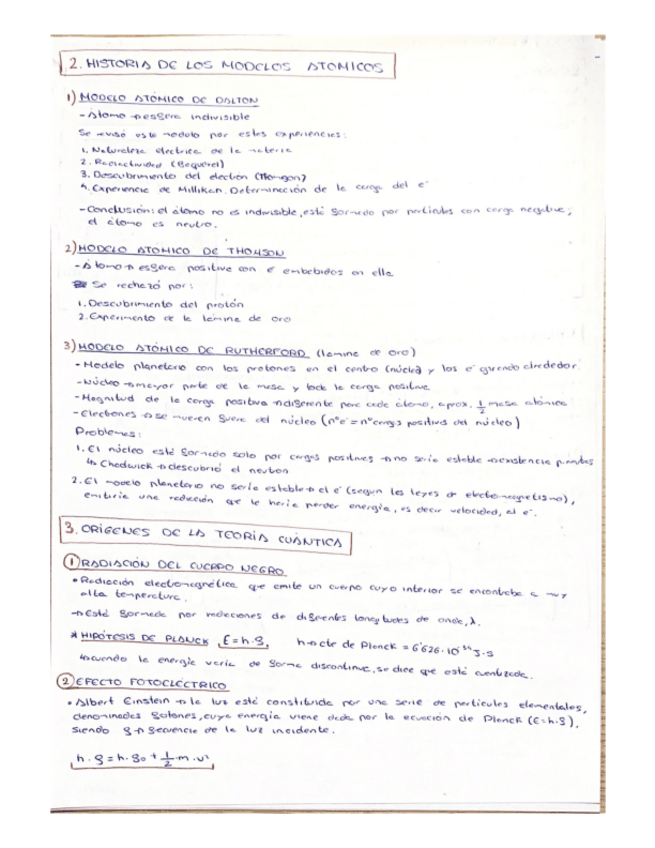 2. HISTORIA DE LOS MODELOS ATOMICOS
1) MODELO ATÓMICO DE DALTON
- Átomo → esfera indivisible
Se revisó este modelo por estas experiencias:
1. Naturaleza electrica de la materia
2. Radiactividad (Bequerel)
3. Descubrimiento del electron (Thomson)
4. Experiencia de Millikan. Determinación de la carga del e⁻
- Conclusión: el átomo no es indivisible, está formado por particulas con carga negativa;
el átomo es neutro.
2) MODELO ATOMICO DE THOMSON
- Átomo → esfera positiva con e⁻ embebidos en ella
Se rechazó por:
1. Descubrimiento del protón
2. Experimento de la lámina de oro
3) MODELO ATÓMICO DE RUTHERFORD (lamina de oro)
- Modelo planetario con los protones en el centro (núcleo) y los e⁻ girando alrededor
- Núcleo → mayor parte de la masa y toda la carga positiva
- Magnitud de la carga positiva → diferente para cada átomo, aprox. 1/2 masa atómica
- Electrones → se mueven fuera del núcleo (nºe⁻ = nºcargas positivas del núcleo)
Problemas:
1. El núcleo está formado solo por cargas positivas → no seria estable → existencia
↳ Chadwick → descubrió el neutron
2. El modelo planetario no sería estable → el e⁻ (segun las leyes de electromagnetismo),
emitiria una radiación que le haria perder energía, es decir velocidad, al e⁻.
3. ORÍGENES DE LA TEORÍA CUÁNTICA
1 RADIACIÓN DEL CUERPO NEGRO
• Radiación electromagnética que emite un cuerpo cuyo interior se encontraba a muy
alta temperatura.
→ Está formada por radiaciones de diferentes longitudes de onda, λ.
* HIPÓTESIS DE PLANCK E = h·f h → cte de Planck = 6'626·10⁻³⁴ J·s
↳ cuando la energía varía de forma discontinua, se dice que está cuantizada.
2 EFECTO FOTOELÉCTRICO
• Albert Einstein → la luz está constituida por una serie de particulas elementales,
denominadas fotones, cuya energia viene dada por la ecuación de Planck (E=h·f),
siendo f → frecuencia de la luz incidente.
h·f = h·f₀ + 1/2·m·v²